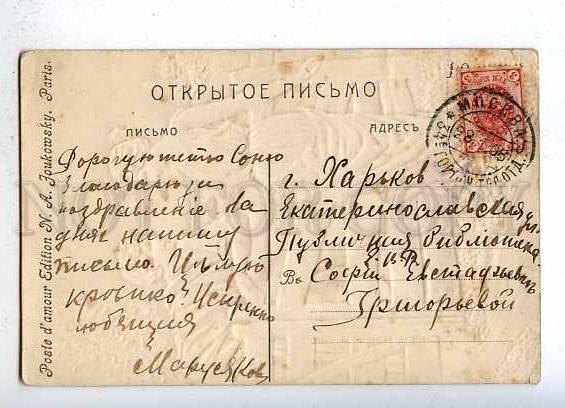 Poste d'amour Edition N. A. Joukowsky. Paris.
ОТКРЫТОЕ ПИСЬМО
ПИСЬМО
АДРЕСЪ
Дорогую тетю Соню
благодарю за
поздравленіе. На
дняхъ напишу
письмо. Цѣлую
крѣпко. Искренно
любящая
Маруся Ков
МОСКВА
г. Харьков
Екатеринославская ул.
Публичная библіотека.
Е.В.Б.
Въ Софіи Евстафьевнѣ
Григорьевой